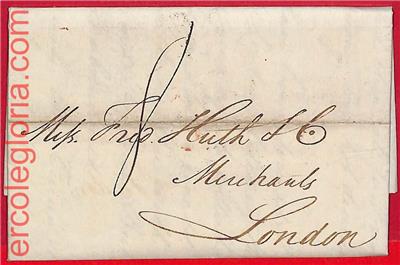 8
Mess. Fred. Huth & Co
Merchants
London
ercolegloria.com